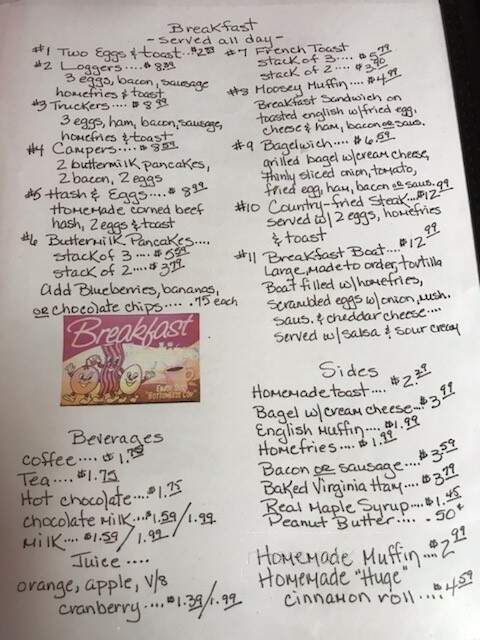 Breakfast
- served all day -
#1 Two Eggs & toast...
#2 Loggers....
3 eggs, bacon, sausage
homefries & toast
#3 Truckers.... $8.99
3 eggs, ham, bacon, sausage,
homefries & toast
#4 Campers.... $8.59
2 buttermilk pancakes,
2 bacon, 2 eggs
#5 Hash & Eggs.... $8.99
Homemade corned beef
hash, 2 eggs & toast
#6 Buttermilk Pancakes....
stack of 3.... $5.59
stack of 2.... $3.79
add Blueberries, bananas,
or chocolate chips.... .75 each
Breakfast
Enjoy
"Bottomless Cup"
Beverages
coffee.... $1.75
Tea.... $1.75
Hot chocolate...$1.75
chocolate milk..$1.59/1.99
milk.... $1.59/1.99
Juice....
orange, apple, V/8
cranberry....$1.39/1.99
#7 French Toast
stack of 3.... $5.79
stack of 2....
#8 Moosey Muffin.... $4.99
Breakfast Sandwich on
toasted english w/fried egg,
cheese & ham, bacon or saus.
#9 Bagelwich.... $6.59
grilled bagel w/cream cheese,
thinly sliced onion, tomato,
fried egg, ham, bacon or saus.
#10 Country-fried Steak...$12.99
served w/ 2 eggs, homefries
& toast
#11 Breakfast Boat.... $12.99
Large, made to order, tortilla
Boat filled w/homefries,
scrambled eggs w/onion, mush.
saus. & cheddar cheese....
served w/salsa & sour cream
Sides
Homemade toast.... $2.39
Bagel w/cream cheese..$3.99
English Muffin....$1.99
Homefries.... $1.99
Bacon or sausage....$3.59
Baked Virginia Ham....$3.79
Real Maple Syrup....$1.45
Peanut Butter.... .50¢
Homemade Muffin...$2.99
Homemade "Huge"
cinnamon roll....$4.59